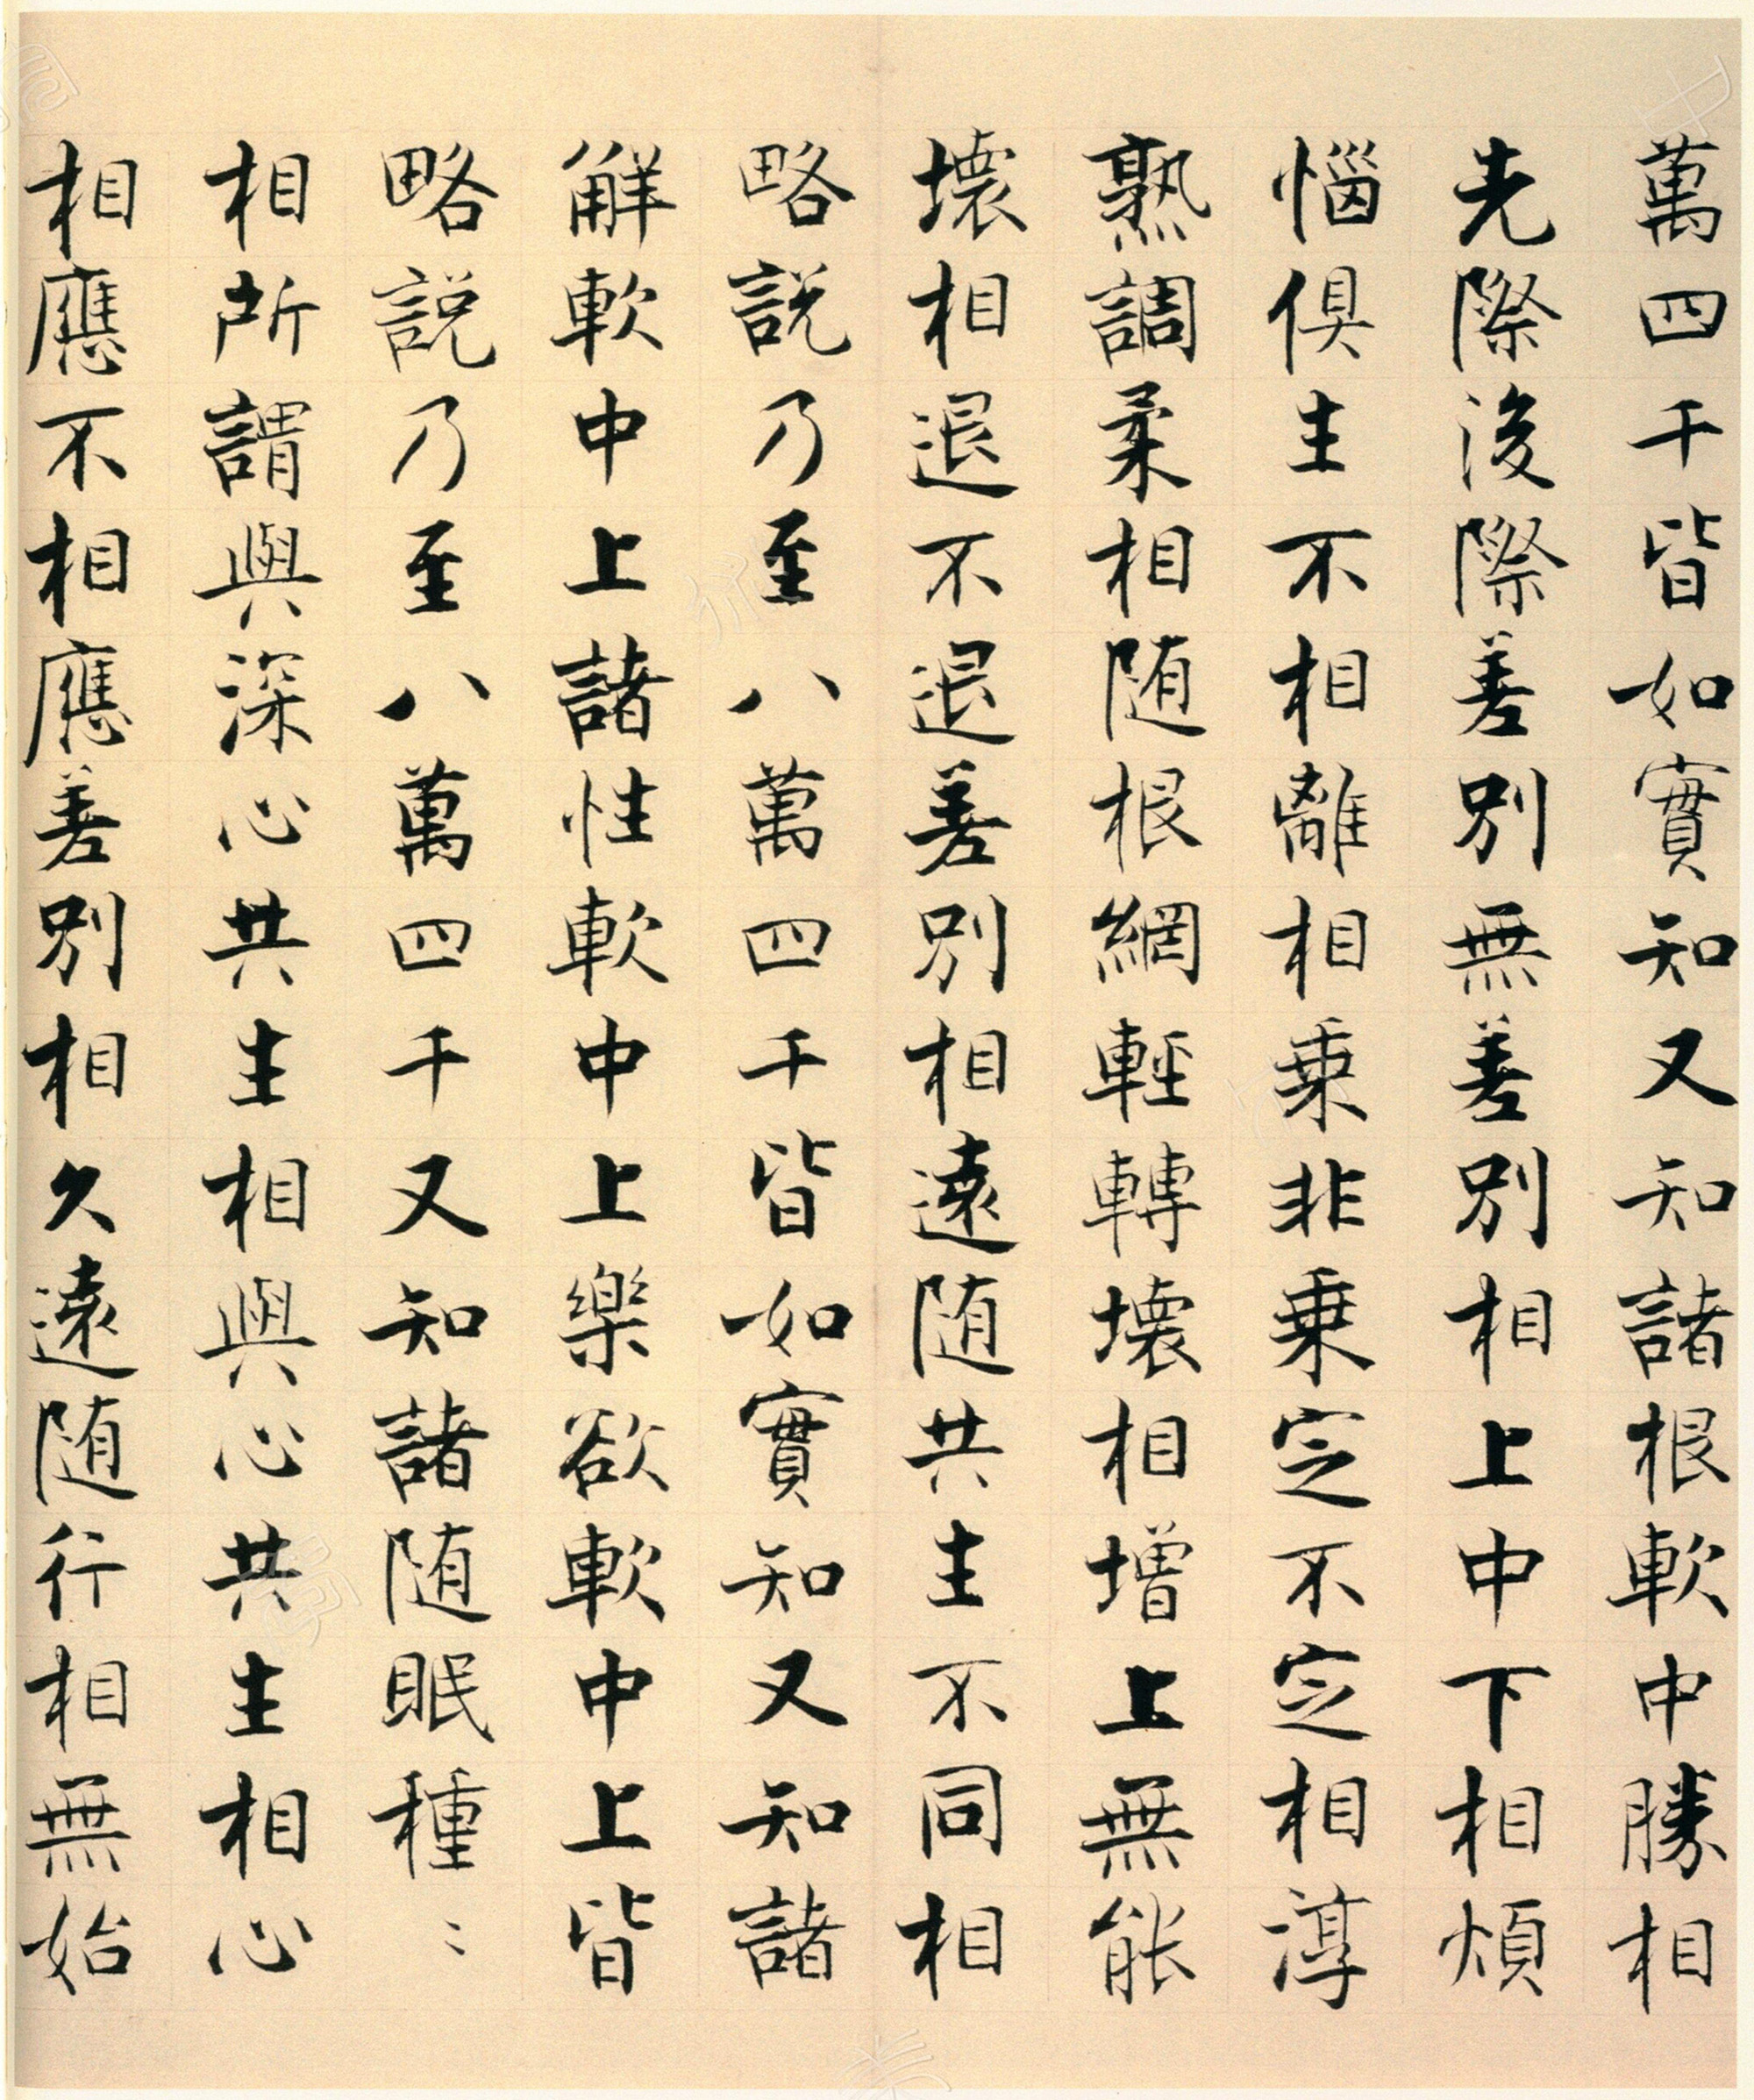 萬四千皆如實知又知諸根軟中勝相
先際後際差別無差別相上中下相煩
惱俱生不相離相乘非乘定不定相淳
熟調柔相隨根網輕轉壞相增上無能
壞相退不退差別相遠隨共生不同相
略說乃至八萬四千皆如實知又知諸
解軟中上諸性軟中上樂欲軟中上皆
略說乃至八萬四千又知諸隨眠種〻
相所謂與深心共生相與心共生相心
相應不相應差別相久遠隨行相無始